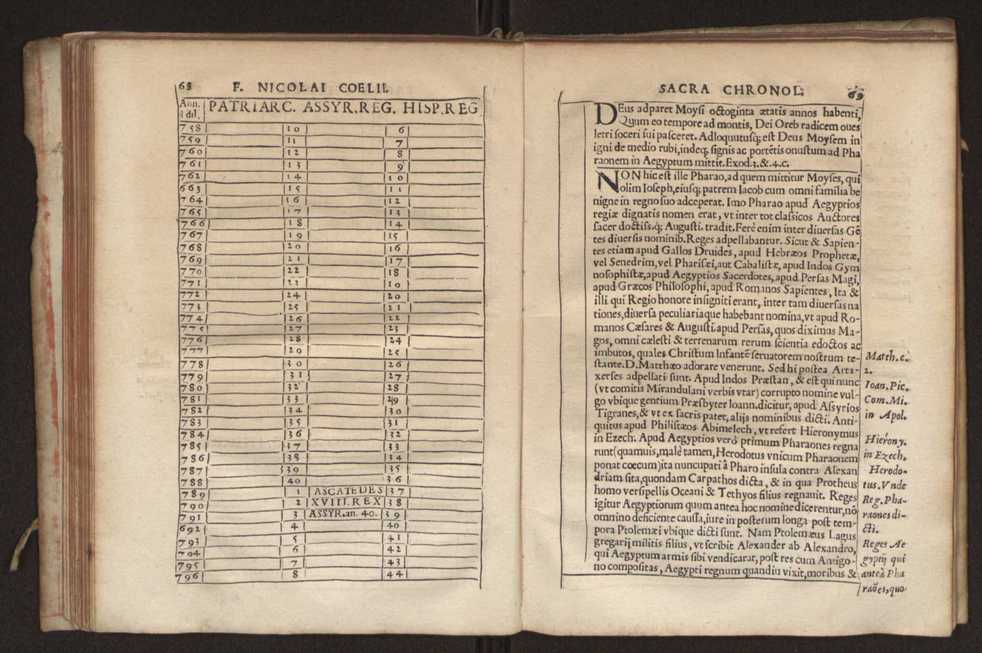 68 F. NICOLAI COELII.
Ann. dil. PATRIARC. ASSYR.REG. HISP.REG
758 10 6
759 11 7
760 12 8
761 13 9
762 14 10
663 15 11
764 16 12
765 17 13
766 18 14
767 19 15
768 20 16
769 21 17
770 22 18
771 23 10
772 24 20
773 25 21
774 26 22
775 27 23
776 28 24
777 29 25
778 30 26
779 31 27
780 32 28
781 33 29
782 34 30
783 35 31
784 36 32
785 37 33
786 38 34
787 39 35
788 40 36
789 1 ASCATEDES 37
790 2 XVIII. REX 38
791 3 ASSYR. an. 40. 39
692 4 40
793 5 41
794 6 42
795 7 43
796 8 44
SACRA CHRONOL: 69
DEus adparet Moysi octoginta ætatis annos habenti,
Quum eo tempore ad montis, Dei Oreb radicem oues
Ietri soceri sui pasceret. Adloquutusq; est Deus Moysem in
igni de medio rubi, indeq; signis ac portētis onustum ad Pha
raonem in Aegyptum mittit. Exod. 3. & .4. c.
NON hic est ille Pharao, ad quem mittitur Moyses, qui
olim Ioseph, eiusq; patrem Iacob cum omni familia be
nigne in regno suo adceperat. Imo Pharao apud Aegyptios
regiæ dignatis nomen erat, vt inter tot classicos Auctores
sacer doctiss. q; Augusti. tradit. Ferè enim inter diuersas Gē
tes diuersis nominib. Reges adpellabantur. Sicut & Sapien-
tes etiam apud Gallos Druides, apud Hebræos Prophetæ,
vel Senedrim, vel Pharisei, aut Cabalistæ, apud Indos Gym
nosophistæ, apud Aegyptios Sacerdotes, apud Persas Magi,
apud Græcos Philosophi, apud Romanos Sapientes, Ita &
illi qui Regio honore insigniti erant, inter tam diuersas na
tiones, diuersa peculiariaque habebant nomina, vt apud Ro-
manos Cæsares & Augusti. apud Persas, quos diximus Ma-
gos, omni cælesti & terrenarum rerum scientia edoctos ac
imbutos, quales Christum Infantē seruatorem nostrum te-
stante. D. Matthæo adorare venerunt. Sed hi postea Arta-
xerses adpellati sunt. Apud Indos Præstan, & est qui nunc
(vt comitis Mirandulani verbis vtar) corrupto nomine vul-
go vbique gentium Præsbyter Ioann. dicitur, apud Assyrios
Tigranes, & vt ex sacris patet, alijs nominibus dicti. Anti-
quitus apud Philistæos Abimelech, vt refert Hieronymus
in Ezech. Apud Aegyptios verò primum Pharaones regna
runt (quamuis, male tamen, Herodotus vnicum Pharaonem
ponat cœcum) ita nuncupati à Pharo insula contra Alexan
driam sita, quondam Carpathos dicta, & in qua Protheus
homo versipellis Oceani & Tethyos filius regnauit. Reges
igitur Aegyptiorum quum antea hoc nomine dicerentur, nō
omnino deficiente caussa, iure in posterum longa post tem-
pora Ptolemæi vbique dicti sunt. Nam Ptolemæus Lagus
gregarij militis filius, vt scribit Alexander ab Alexandro,
qui Aegyptum armis sibi vendicarat, post res cum Antigo-
no compositas, Aegypti regnum quandiu vixit, moribus &
Matth. c.
2.
Ioan. Pic.
Com. Mi.
in Apol.
Hierony.
in Ezech.
Herodo-
tus. Vnde
Reg. Pha-
raones di-
cti.
Reges Ae
gyptij qui
anteà Pha
raões, quo